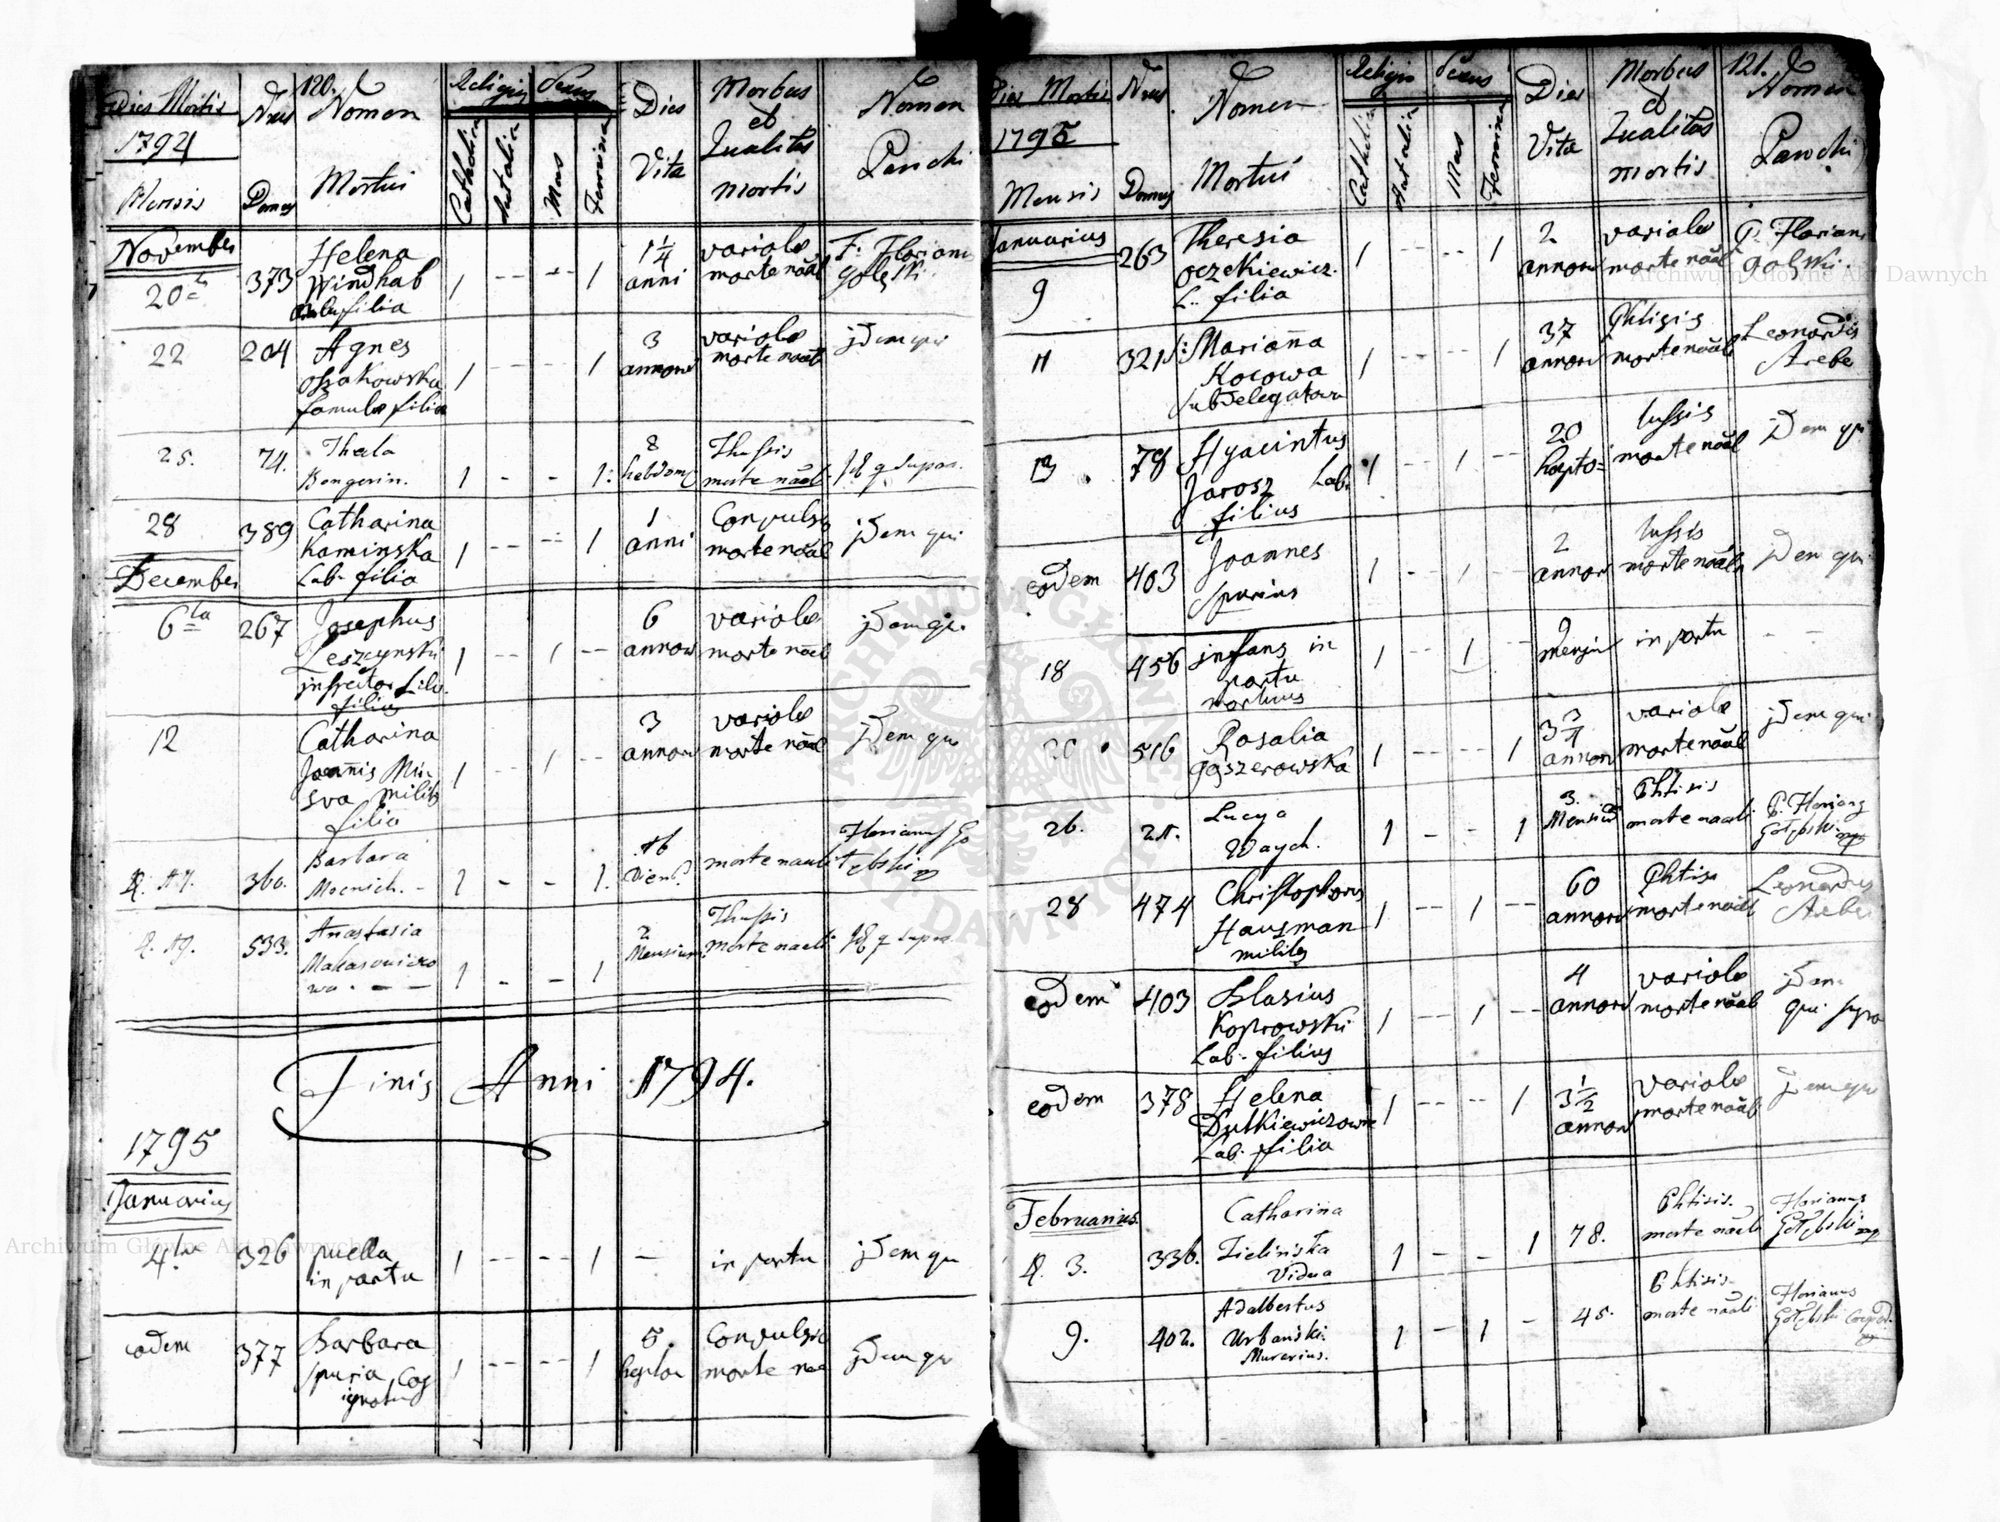 Dies Mortis
1794
Mensis
Nrus
Domus
120.
Nomen
Mortui
Religio
Catholica
Aut alia
Sexus
Mas
Femina
Dies
Vita
Morbus
et
Qualitas
mortis
Nomen
Parochi
November
20
373
Helena
Windhab
filia
1
--
--
1
1 1/4
anni
variola
morte nāāl
F: Florian
Golęski
22
204
Agnes
Ossakowska
famula filia
1
---
---
1
3
annor
variola
morte naāl
jdem qui
25.
74.
Thecla
Bengerin.
1
-
-
1:
8
hebdom
Thussis
morte nāāl
Jd q supra.
28
389
Catharina
Kaminska
Lab. filia
1
--
--
1
1
anni
Convulsy
morte nāāl
jdem qui
December
6ta
267
Josephus
Leszczynski
inspector
filius
1
--
1
--
6
annor
variola
morte nāāl
jdem qui
12
Catharina
Joannis Min
sva milit
filia
1
--
1
--
3
annor
variola
morte nāāl
jdem qui
360.
Barbara
Mocnich. -
1
-
-
1.
16
Dierū.
morte naali
Florianus Go
łębski
533.
Anastasia
Makarowiczo
wa . - -
1
-
-
1
2
Mensium
Thussis
morte naali
Jd q supra
Finis Anni 1794.
1795
Januarius
4ta
326
puella
in partu
1
--
--
1
-
in partu
jdem qui
eodem
377
Barbara
spuria, Cog
ignotu
1
--
--
1
5.
Septim
Convulsio
morte naa
jdem qu
Dies Mortis
1795
Mensis
Nrus
Domus
Nomen
Mortui
Religio
Catholica
Aut alia
Sexus
Mas
Femina
Dies
Vita
Morbus
et
Qualitas
mortis
121.
Nomen
Parochi
Januarius
9
263
Theresia
Oczekiewicz.
L. filia
1
---
--
1
2
annor
variola
morte nāāl
P. Florian
Gołbski.
11
321
Mariańa
Kocowa
Subdelegatowa
1
--
--
1
37
annor
Phtisis
morte nāāl
Leonardus
Arebe
13
78
Hyacintus
Jarosz Lab.
filius
1
--
1
--
20
tussis
morte nāāl
jdem qui
eodem
403
Joannes
spurius
1
-
1
--
2
annor
tussis
morte nāāl
jdem qui
18
456
jnfans in
partu
mortuus
1
--
1
--
9
mensiu
in partu
- -
20
516
Rosalia
Gąszerowska
1
--
--
1
3 3/4
annor
variola
morte nāāl
jdem qui
26.
21.
Lucya
Waych.
1
-
-
1
3.
Mensiū
Phtisis
morte naali
P. Florians
Gołębski mp
28
474
Christophorus
Hausman
milites
1
--
1
--
60
annor
Phtisis
morte nāāl
Leonardus
Arebe
eodem
403
Blasius
Koprowski
Lab. filius
1
--
1
--
4
annor
variola
morte nāāl
jdem
qui supra
eodem
378
Helena
Dutkiewiczowna
Lab. filia
1
--
--
1
3 1/2
annor
variola
morte nāāl
jdem qui
Februarius.
3.
336.
Catharina
Zielińska
Vidua
1
-
-
1
78.
Phtisis.
morte nāāli
Florianus
Gołębski mp
9.
402.
Adalbertus
Urbański.
Murarius.
1
-
1
-
45.
Phtisis
morte nāāli
Florianus
Gołębski
Archiwum Główne Akt Dawnych
Archiwum Główne Akt Dawnych
ARCHIWUM GŁÓWNE AKT DAWNYCH